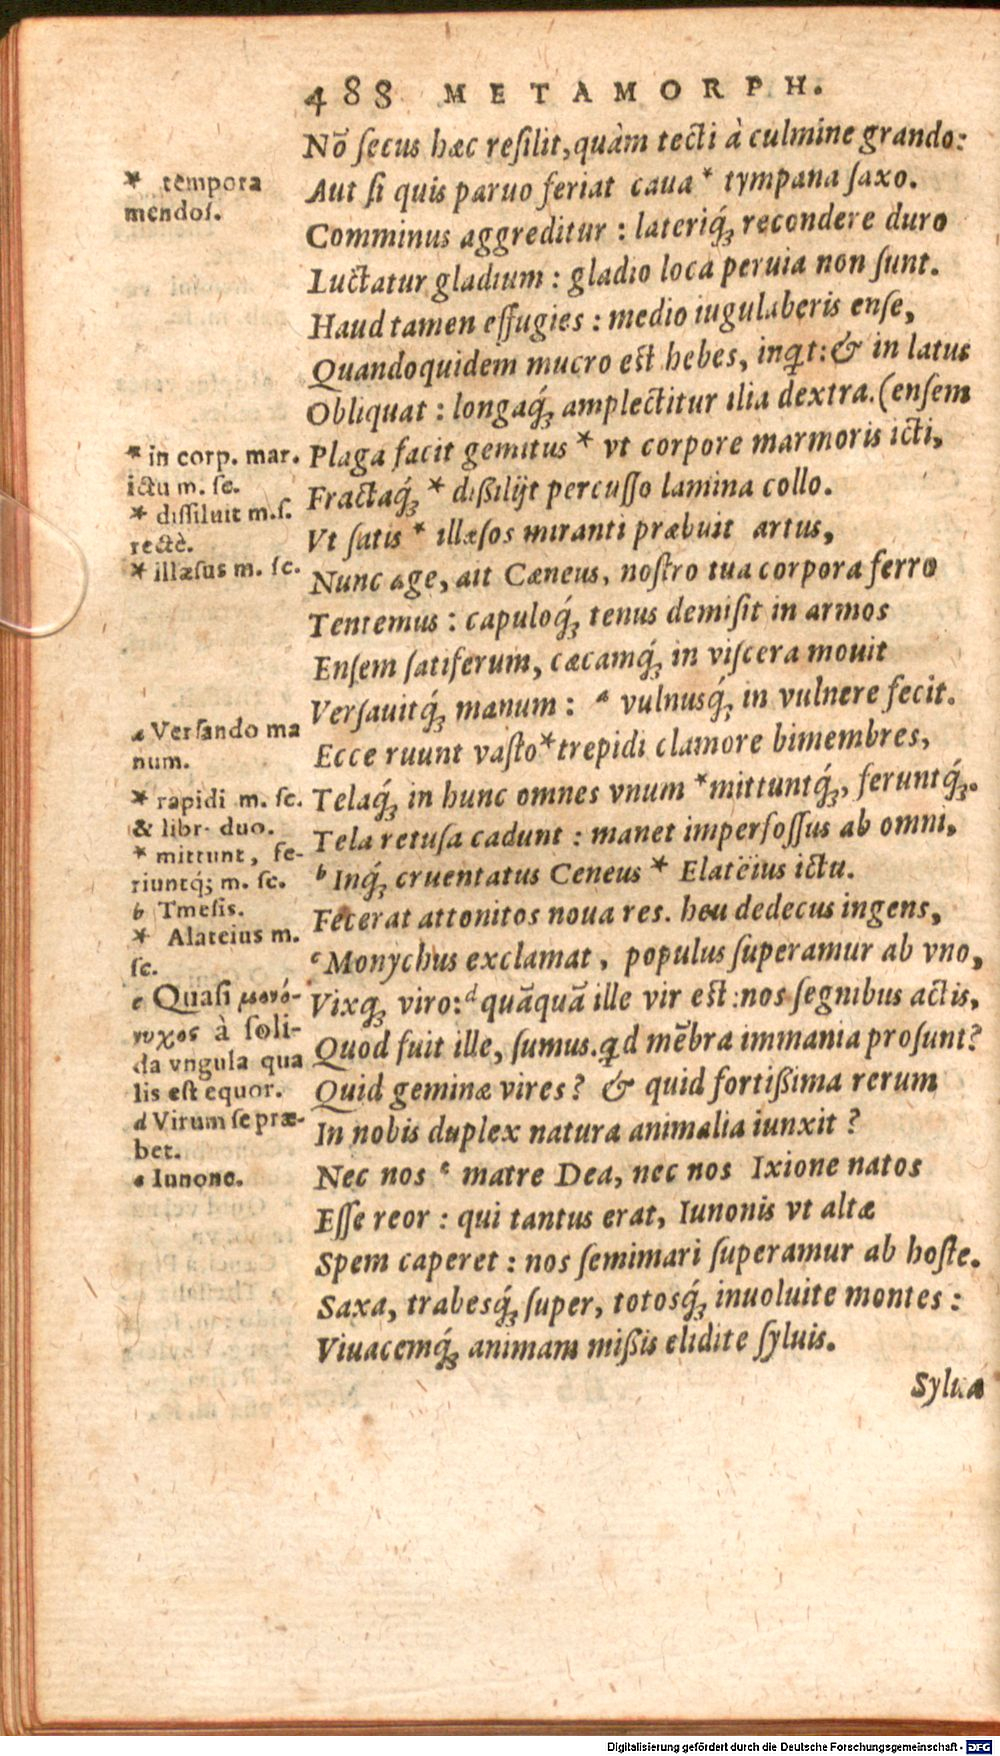 488 METAMORPH.
Nō ſecus hæc reſilit, quàm tecti à culmine grando:
Aut ſi quis paruo feriat caua * tympana ſaxo.
Comminus aggreditur : lateriq́ꝫ recondere duro
Luctatur gladium : gladio loca peruia non ſunt.
Haud tamen effugies : medio iugulaberis enſe,
Quandoquidem mucro est hebes, inq̃t: & in latus
Obliquat : longaq́ꝫ amplectitur ilia dextra. (enſem
Plaga facit gemitus * vt corpore marmoris icti,
Fractaq́ꝫ * dißilijt percuſſo lamina collo.
Vt ſatis * illæſos miranti præbuit artus,
Nunc age, ait Cæneus, noſtro tua corpora ferro
Tentemus : capuloq́ꝫ tenus demiſit in armos
Enſem fatiferum, cæcamq́ꝫ in viſcera mouit
Verſauitq́ꝫ manum : ᵃ vulnusq́ꝫ in vulnere fecit.
Ecce ruunt vaſto * trepidi clamore bimembres,
Telaq́ꝫ in hunc omnes vnum * mittuntq́ꝫ, feruntq́ꝫ.
Tela retuſa cadunt : manet imperfoſſus ab omni,
ᵇ Inq́ꝫ cruentatus Ceneus * Elatëius ictu.
Fecerat attonitos noua res. heu dedecus ingens,
ᶜ Monychus exclamat, populus ſuperamur ab vno,
Vixqꝫ viro: ᵈ quāquā ille vir est : nos ſegnibus actis,
Quod fuit ille, ſumus. qd mēbra immania proſunt?
Quid geminæ vires? & quid fortißima rerum
In nobis duplex natura animalia iunxit?
Nec nos ᵉ matre Dea, nec nos Ixione natos
Eſſe reor : qui tantus erat, Iunonis vt altæ
Spem caperet : nos ſemimari ſuperamur ab hoſte.
Saxa, trabesq́ꝫ ſuper, totosq́ꝫ inuoluite montes :
Viuacemq́ꝫ animam mißis elidite ſyluis.
Sylua
* tempora
mendoſ.
* in corp. mar.
ictu m. ſe.
* diſſiluit m. ſ.
rectè.
* illæſus m. ſe.
a Verſando ma
num.
* rapidi m. ſe.
& libr. duo.
* mittunt, fe-
riuntq́; m. ſe.
b Tmeſis.
* Alateius m.
ſe.
c Quaſi μονό-
νυχος à ſoli-
da vngula qua
lis eſt equor.
d Virum ſe præ-
bet.
e Iunone.
Digitalisierung gefördert durch die Deutsche Forschungsgemeinschaft - DFG